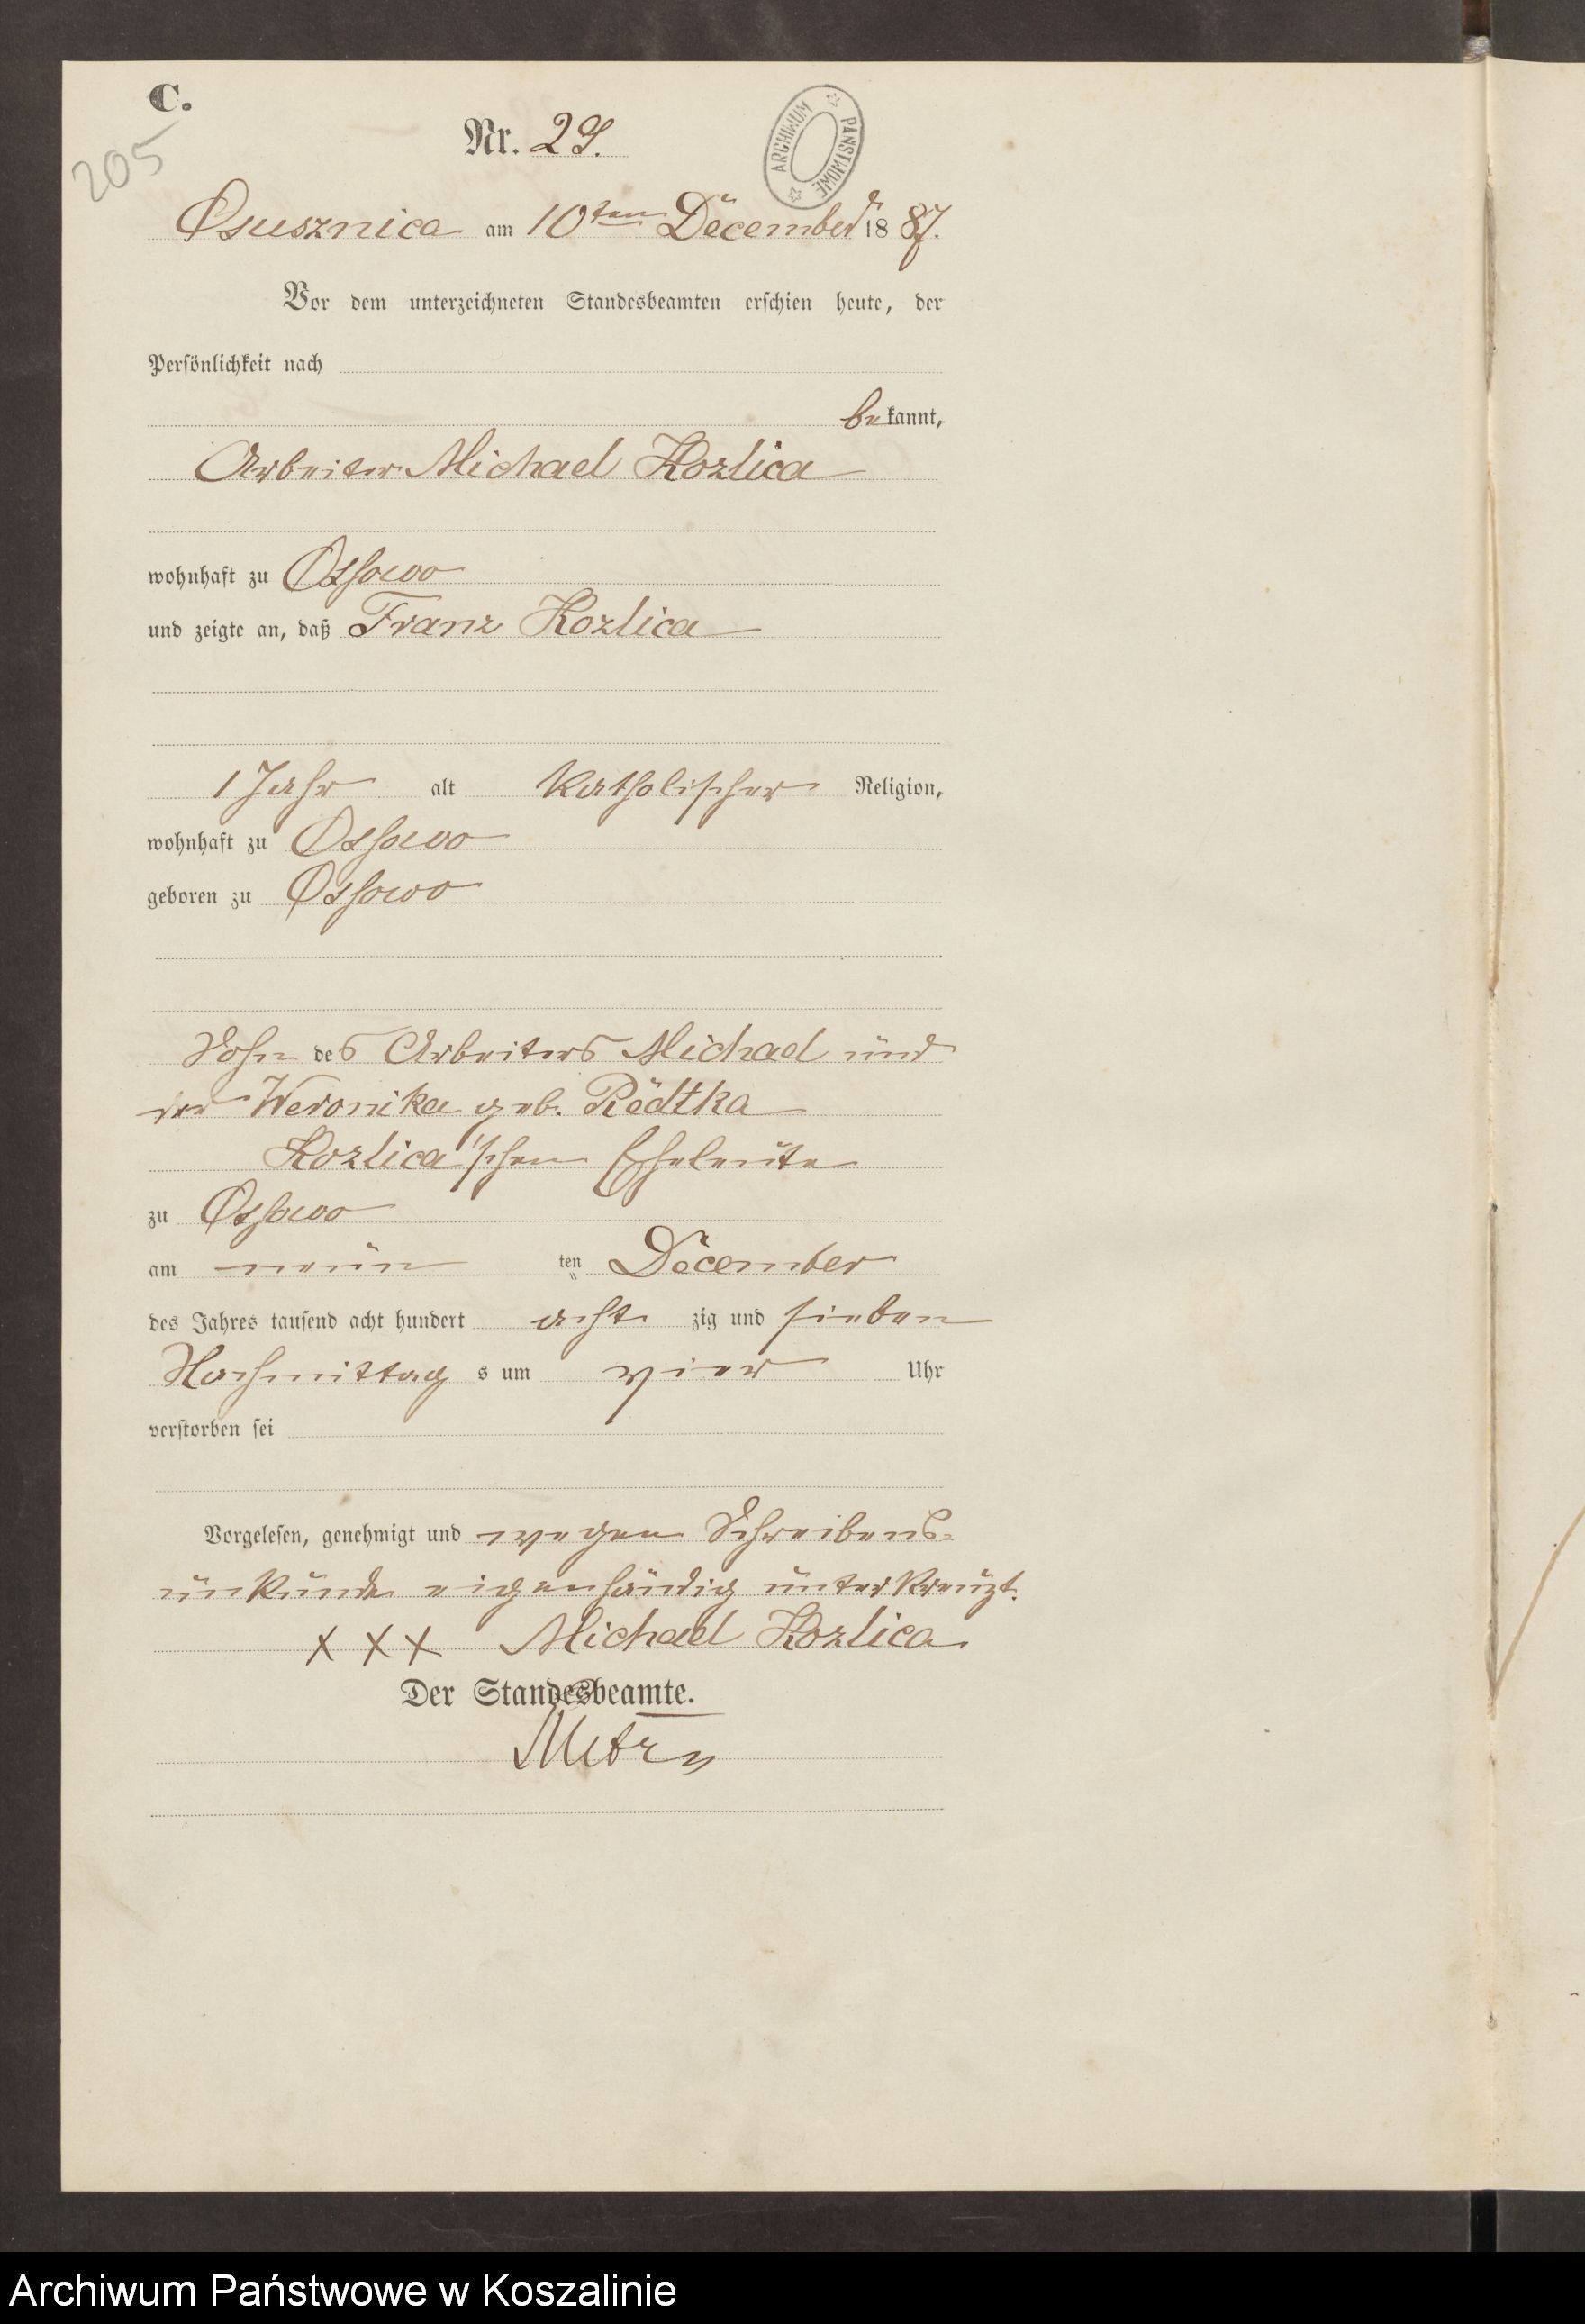 C.
205
Nr. 29.
ARCHIWUM PAŃSTWOWE
Osusznica am 10ten December 1887.
Vor dem unterzeichneten Standesbeamten erschien heute, der
Persönlichkeit nach
bekannt,
Arbeiter Michael Kozlica
wohnhaft zu Ossowo
und zeigte an, daß Franz Kozlica
1 Jahr alt katholischer Religion,
wohnhaft zu Ossowo
geboren zu Ossowo
Sohn des Arbeiters Michael und
der Weronika geb. Rëdtka
Kozlica'schen Eheleute
zu Ossowo
am neun ten December
des Jahres tausend acht hundert acht zig und sieben
Nachmittag s um vier Uhr
verstorben sei
Vorgelesen, genehmigt und wegen Schreibens-
unkunde eigenhändig unterkreuzt.
XXX Michael Kozlica
Der Standesbeamte.
Archiwum Państwowe w Koszalinie